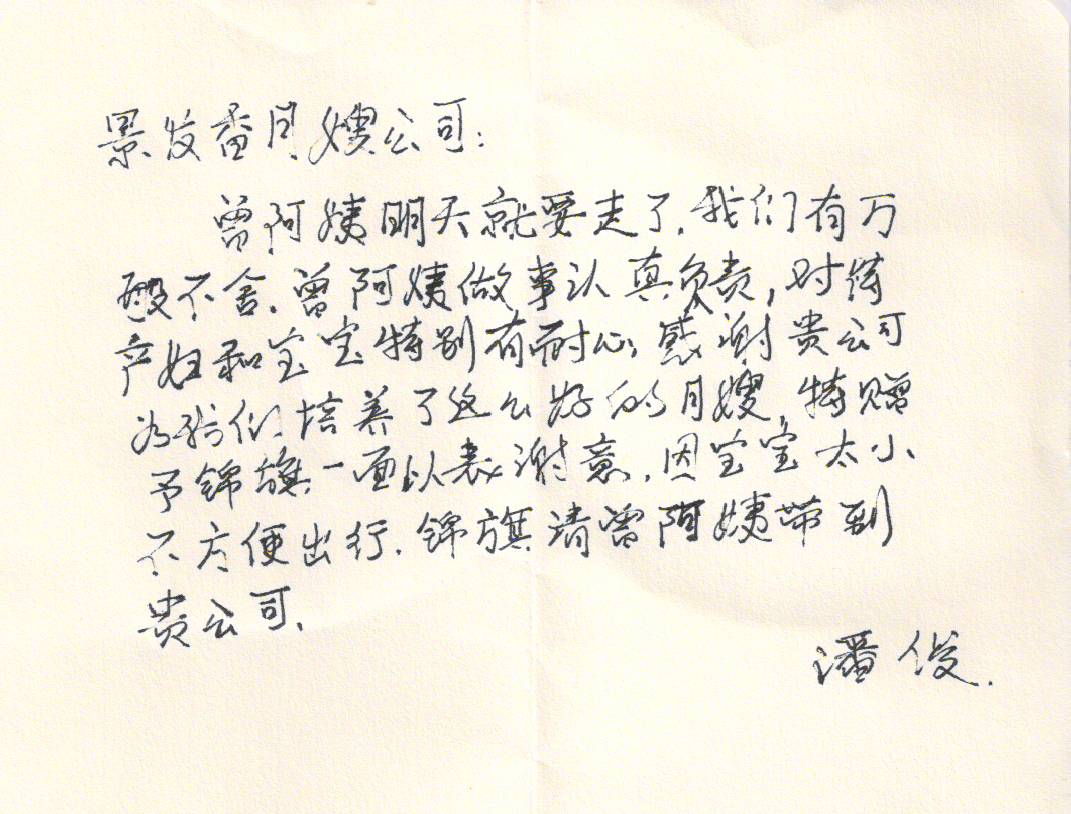 景发番月嫂公司:
曾阿姨明天就要走了.我们有万
般不舍.曾阿姨做事认真负责,对待
产妇和宝宝特别有耐心,感谢贵公司
为我们培养了这么好的月嫂,特赠
予锦旗一面以表谢意.因宝宝太小
不方便出行.锦旗请曾阿姨带到
贵公司.
潘俊.